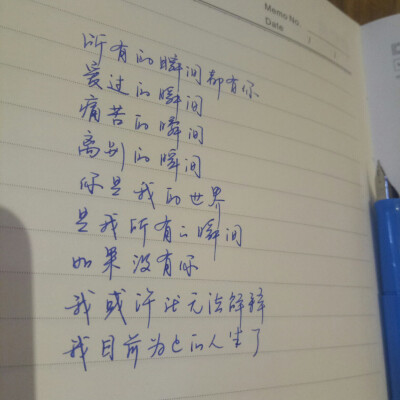 Memo No.
Date / /
所有的瞬间都有你
爱过的瞬间
痛苦的瞬间
离别的瞬间
你是我的世界
是我所有的瞬间
如果没有你
我或许就无法解释
我目前为止的人生了